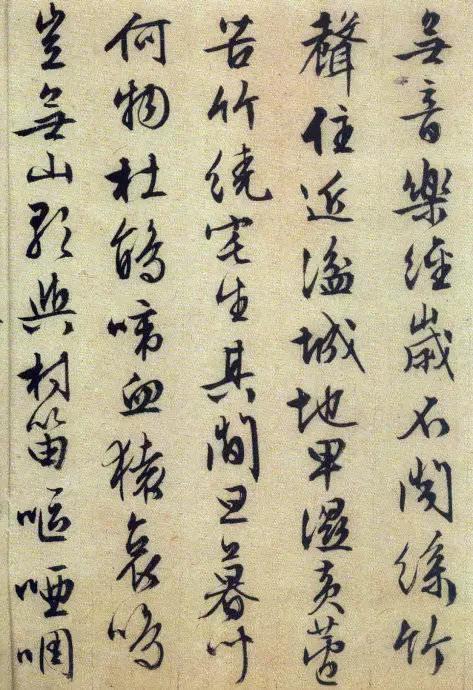 無音樂經歲不聞絲竹
聲住近湓城地卑濕黃蘆
苦竹繞宅生其間旦暮
何物杜鵑啼血猿哀鳴
豈無山歌與村笛嘔啞啁